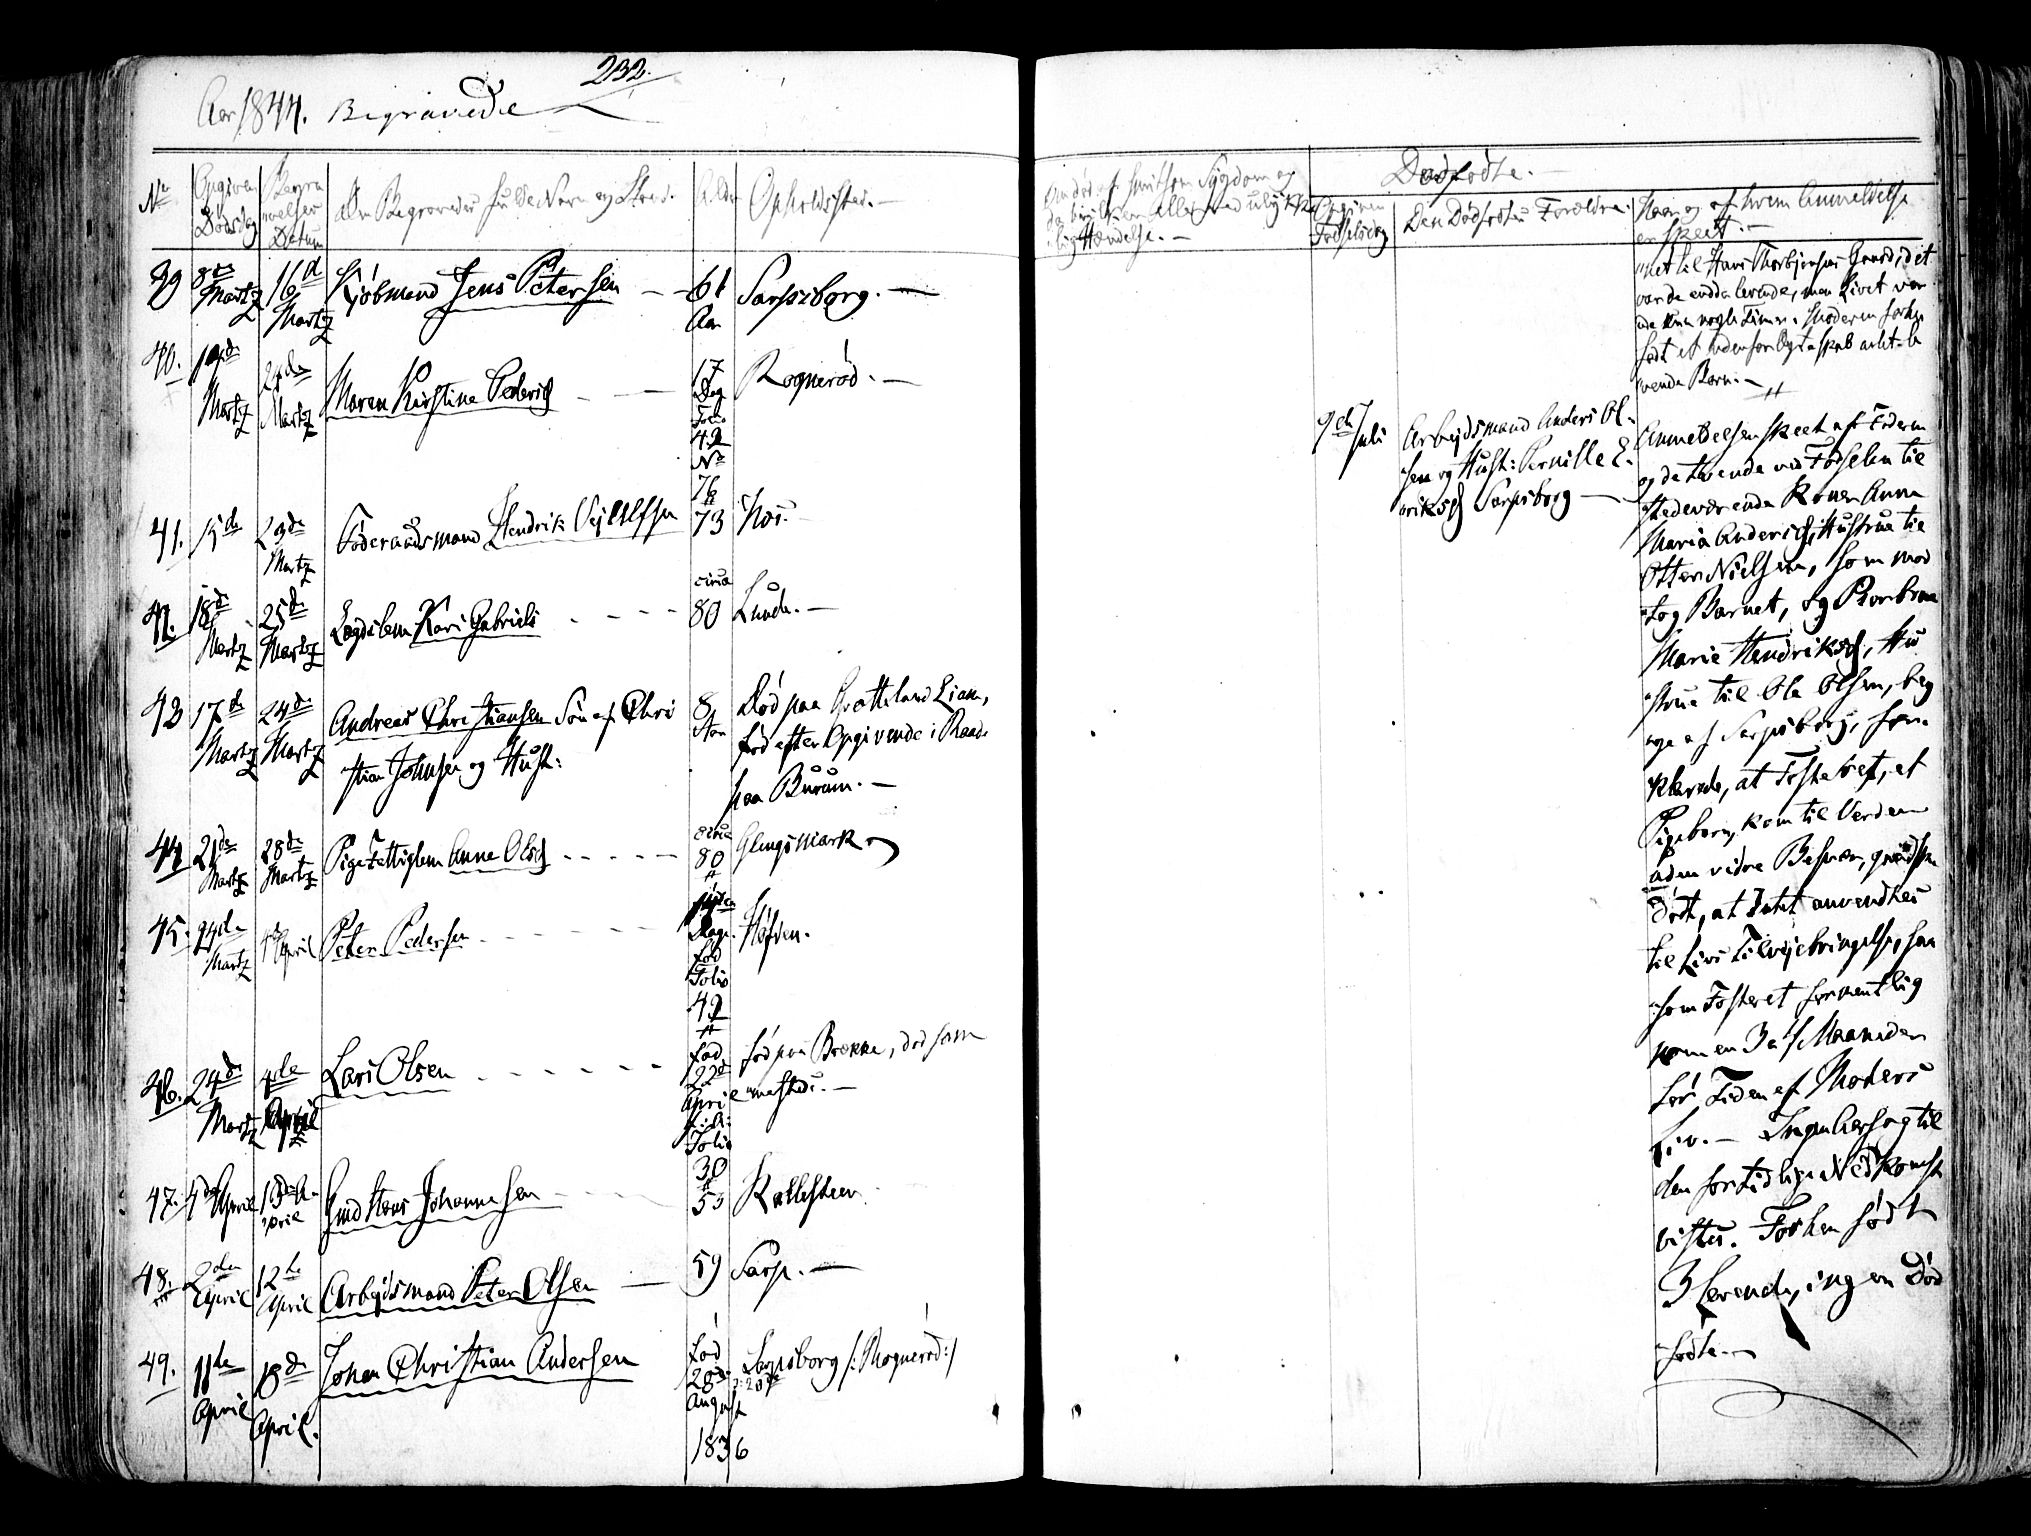 232.
Aar 1844. Begravede
No
Opgiven
Dødsdag
Begra
velses
Datum
Den Begravedes fulde Navn og Stand.
Alder
Opholdssted. —
39 8de Martz 16d Martz Kjøbmand Jens Petersen — 61 Aar Sarpsborg. —
40. 19de Martz 24de Martz Maren Kirstine Pedersd — 17 Dag Folio 42 No 76 Rognerød. —
41. 15de 23de Martz Føderaadsmand Hendrik 73
18de Martz 25de Martz Lægdslem Kari Gabriels - - - circa 80 Lunde. —
43 17de Martz 24de Martz Andreas Christiansen Søn af Chri
stian Johnsen og Hust:
8 Aar
Død paa Grotteland Eian,
fød efter Opgivende i Raade
paa Burum. —
44 21de Martz 28de Martz Pige Fattiglem Anne Olsd - - - - circa 80 Glengsmark
45. 24de Martz April Peter Pedersen - - - - Dage. fød Folio 42 Hafsten.
46. 24de Martz 4de April Lars Olsen - - - - fød 22d April Folio 30
fød paa Brekke, død sam
mesteds. —
47. April 13de April Gmd Hans Johannesen - - - 53 Kallesteen
48. 2den April 12te April Arbeidsmand Peter Olsen — 59 Sarp. —
49. 11te April 18de April Johan Christian Andersen fød 28de August 1836 Sarpsborg /: Rognerød :/
Om død af smitsom Sygdom og
da hvilken eller ved ulykke
lig Hændelse. —
Dødfødte. —
Opgiven
Fødselsdag
Den Dødfødtes Forældre.
Naar og af hvem Anmeldelse
er skeet. —
net til Hans Thorbjensens Gaard, det
var da endda levende, men Livet var
ede kun nogle Timer. Moderen forhen
født et udenfor Ægteskab avlet le
vende Barn. —
9de Juli
Arbejdsmand Anders Ol
sen og Hust: Pernille E
eriksd Sarpsborg —
Anmeldelsen skeet af Faderen
og de tvende ved Fødselen til
stedeværende Koner Anne
Maria Andersd, Hustrue til
Otter Nielsen, som mod
tog Barnet, og
Marie Hendriksd, Hu
strue til Ole Olsen, beg
ge af Sarpsborg, for
klarede, at Fosteret, et
Pigebarn, kom til Verden
uden videre Besvær,
dødt, at Intet anvendtes
til Livs Tilvejebringelse, saa
som Fosteret formentlig
kom en 3 a 4 Maaneder
før Tiden af Moders
Liv. — Ingen Aarsag til
den fortidlige Nedkomst
vistes. Forhen født
3 levende, ingen Død
fødte. —